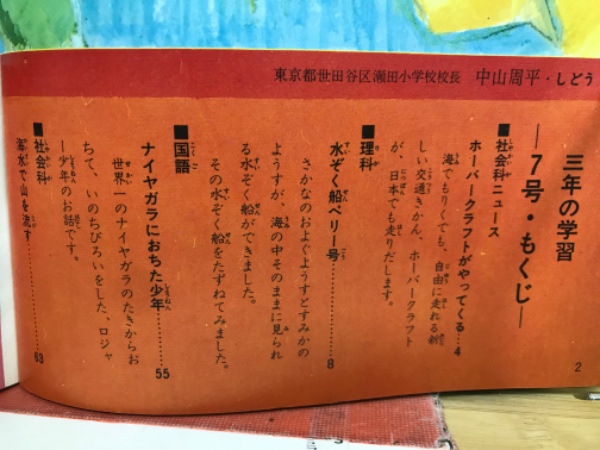 東京都世田谷区瀬田小学校校長 中山周平・しどう
三年の学習
―7号・もくじ―
■社会科ニュース
ホーバークラフトがやってくる……4
海でもりくでも、自由に走れる新
しい交通きかん、ホーバークラフト
が、日本でも走りだします。
■理科
水ぞく船ペリー号……8
さかなのおよぐようすとすみかの
ようすが、海の中そのままに見られ
る水ぞく船ができました。
その水ぞく船をたずねてみました。
■国語
ナイヤガラにおちた少年……55
世界一のナイヤガラのたきからお
ちて、いのちびろいをした、ロジャ
ー少年のお話です。
■社会科
海水で山を流す……63
2